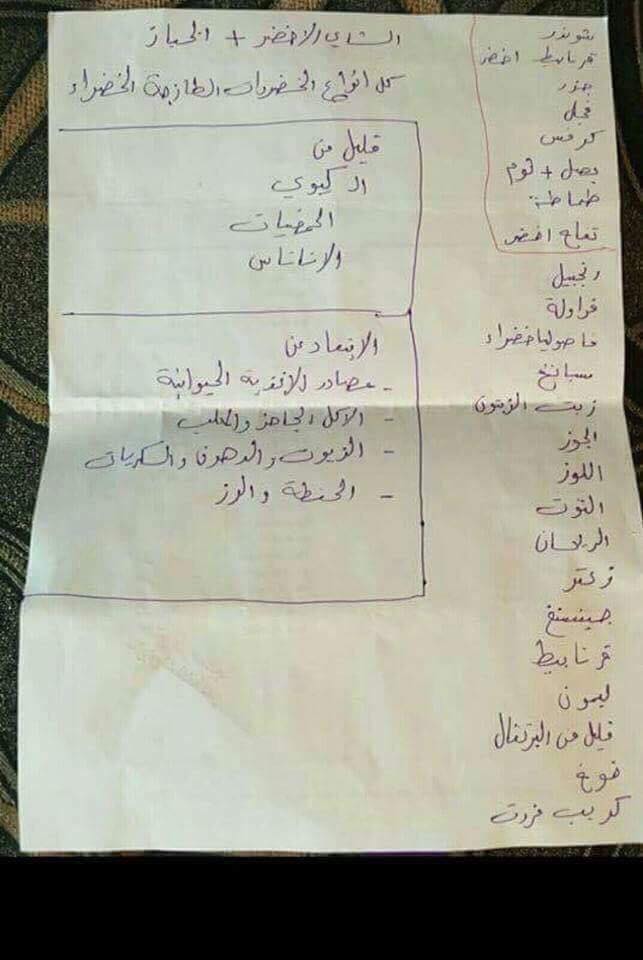 شوندر
قرنابيط اخضر
جزر
فجل
كرفس
بصل + ثوم
طماطة
تفاح اخضر
زنجبيل
فراولة
فاصوليا خضراء
سبانخ
زيت الزيتون
الجوز
اللوز
التوت
الريحان
زعتر
جينسنغ
قرنابيط
ليمون
قليل من البرتقال
خوخ
كريب فروت
الشاي الاخضر + الخباز
كل انواع الخضروات الطازجة الخضراء
قليل من
الكيوي
الحمضيات
الاناناس
الابتعاد عن
- مصادر الاغذية الحيوانية
- الاكل الجاهز والمعلب
- الزيوت والدهون والسكريات
- الحنطة والرز